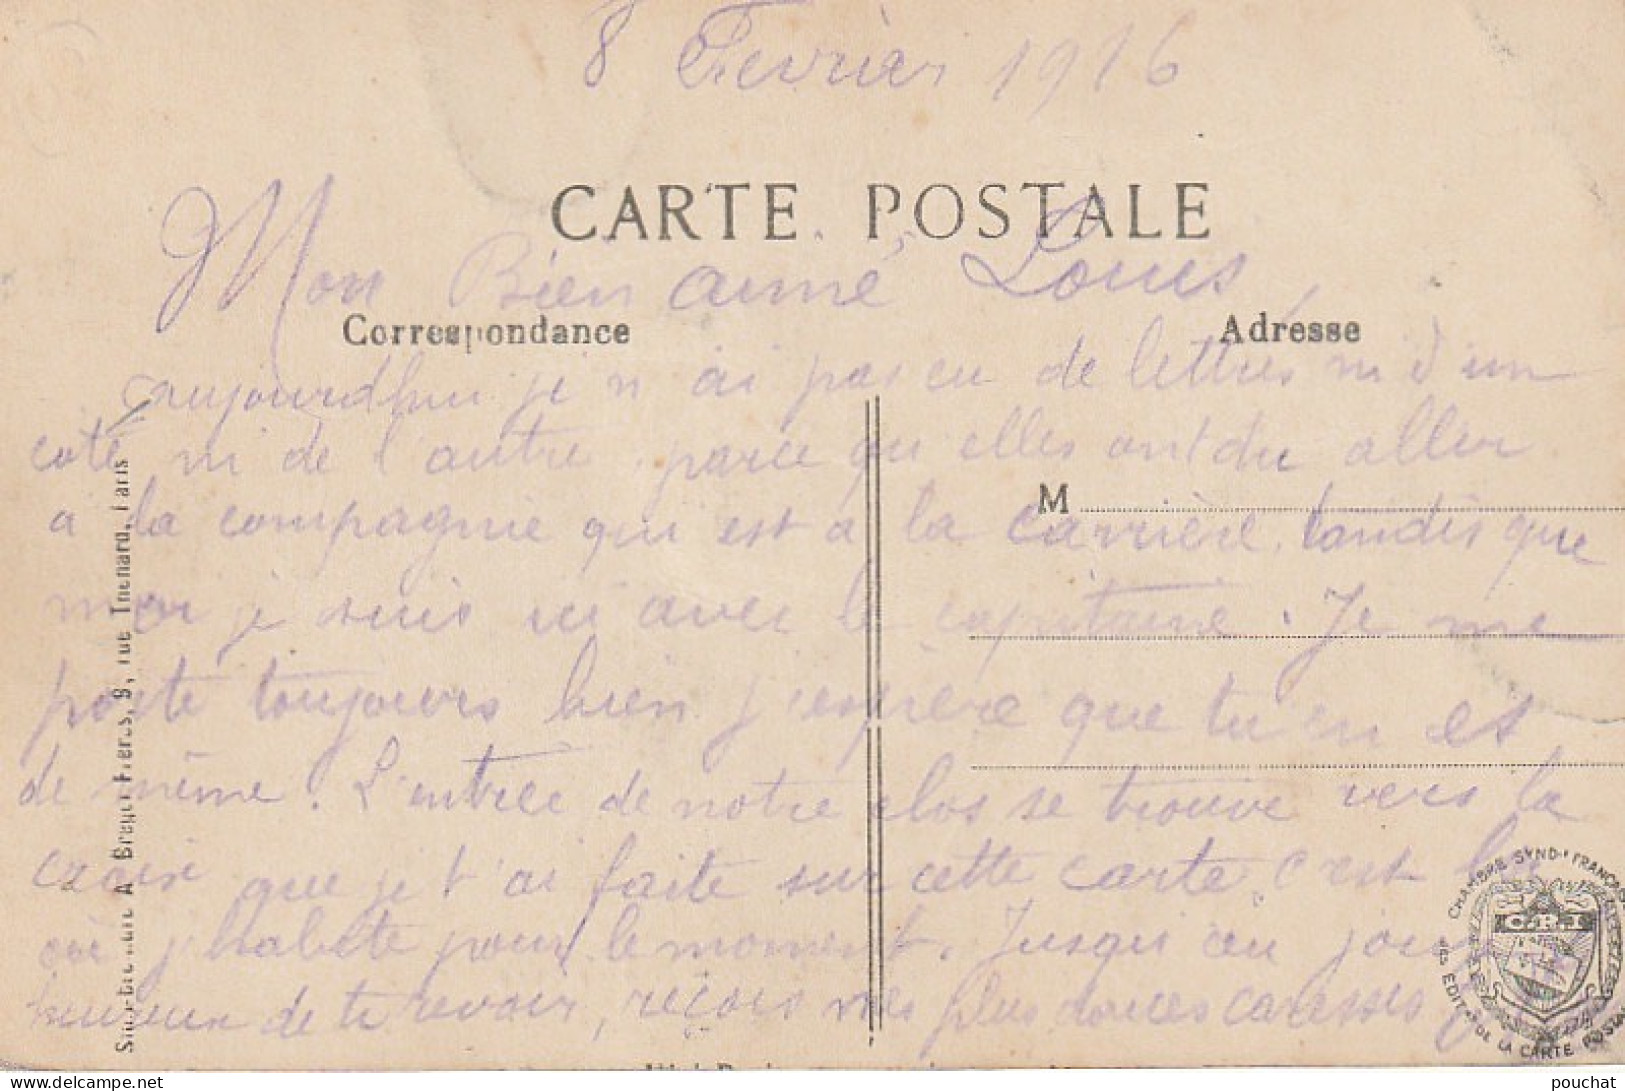 8 Fevrier 1916
CARTE POSTALE
Mon Bien aimé Louis,
Correspondance
Adresse
aujourdhui je n ai pas eu de lettres ni d'un
coté ni de l'autre, parce qu elles ont du aller
a la compagnie qui est a la carrière, tandis que
M
moi je suis ici avec le capitaine. Je me
porte toujours bien j'espère que tu en es
de même. L'entrée de notre clos se trouve vers la
croix que je t'ai faite sur cette carte, c'est la
où j'habite pour le moment. Jusqu'au jour
heureux de te revoir, reçois mes plus douces caresses
A. Breger Frères, 9, rue Thénard, Paris
CHAMBRE SYND. FRANÇAISE
DES EDIT. DE LA CARTE POSTALE
C.P.I
delcampe.net
pouchat